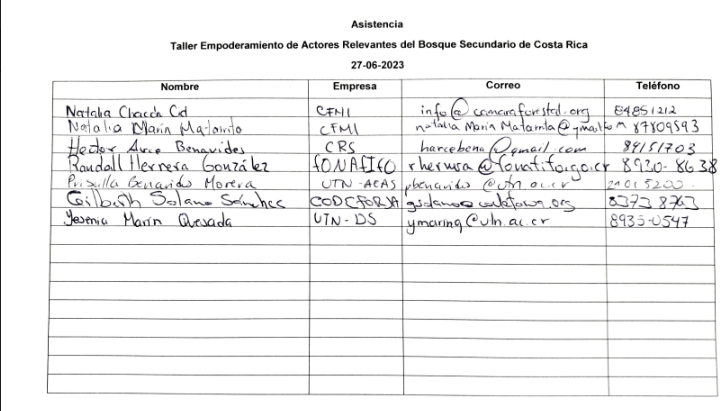 Asistencia
Taller Empoderamiento de Actores Relevantes del Bosque Secundario de Costa Rica
27-06-2023
Nombre Empresa Correo Teléfono
Natalia Chacón Cid CFNI info@camaraforestal.org 64851212
Natalia Marín Matarrita CFMI natalia Marin Matarrita@gmail.com 87809593
Hector Arce Benavides CRS harcebena@gmail.com 89151703
Randall Herrera González FONAFIFO rherrera@fonafifo.go.cr 8930-8638
Priscilla Benavides Morera UTN-ACAS pbenavides@utn.ac.cr
Gilberth Solano Sánchez CODEFORSA gsolano@codeforsa.org 8373 8763
Yesenia Marín Quesada UTN-DS ymaring@utn.ac.cr 8935-0547